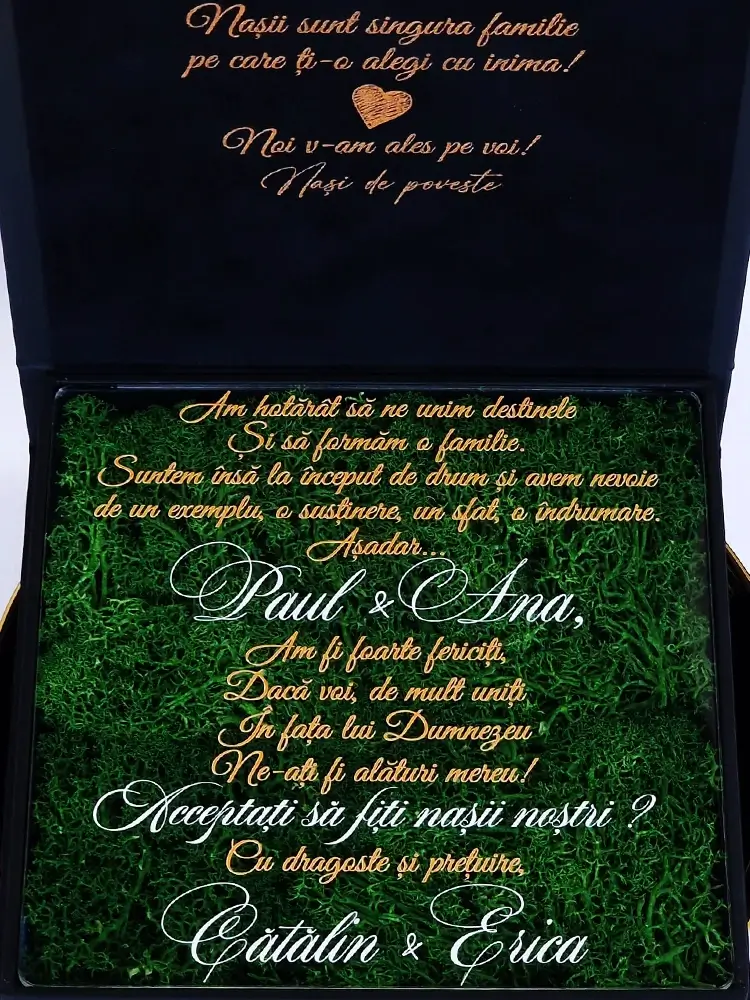 Nașii sunt singura familie
pe care ți-o alegi cu inima!
Noi v-am ales pe voi!
Nași de poveste
Am hotărât să ne unim destinele
Și să formăm o familie.
Suntem însă la început de drum și avem nevoie
de un exemplu, o susținere, un sfat, o îndrumare.
Așadar...
Paul & Ana,
Am fi foarte fericiți,
Dacă voi, de mult uniți
În fața lui Dumnezeu
Ne-ați fi alături mereu!
Acceptați să fiți nașii noștri ?
Cu dragoste și prețuire,
Cătălin & Erica